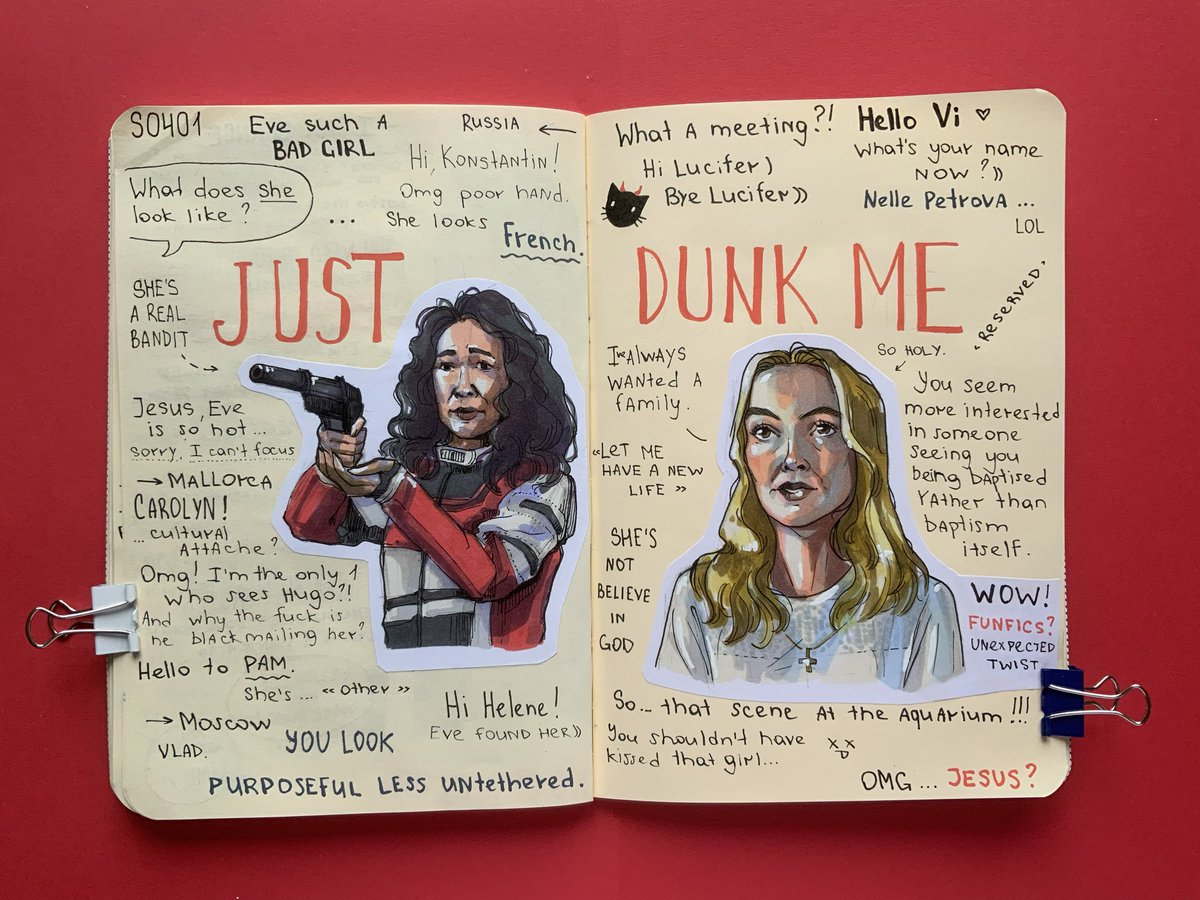 S0401
Eve such A
BAD GIRL
RUSSIA ←
Hi, Konstantin!
What does she
look like?
...
Omg poor hand.
She looks
French.
JUST
SHE'S
A REAL
BANDIT
Jesus, Eve
is so hot...
sorry. I can't focus
→ MALLORCA
CAROLYN!
... cultural
AttAche?
Omg! I'm the only 1
who sees Hugo?!
And why the fuck is
he blackmailing her?
Hello to PAM.
She's ... «other»
→ Moscow
VLAD.
Hi Helene!
Eve found her))
YOU LOOK
PURPOSEFUL LESS UNtethered.
What A meeting?!
Hello Vi ♡
Hi Lucifer)
Bye Lucifer))
What's your name
now?))
Nelle Petrova ...
LOL
DUNK ME
"RESERVED"
SO HOLY.
I've Always
wanted a
family.
«LET ME
HAVE A NEW
LIFE»
SHE'S
NOT
BELIEVE
IN
GOD
You seem
more interested
in someone
seeing you
being baptised
rather than
baptism
itself.
WOW!
FUNFICS?
UNEXPECTED
TWIST
So... that scene at the Aquarium!!!
You shouldn't have
kissed that girl...
xDx
OMG... JESUS?